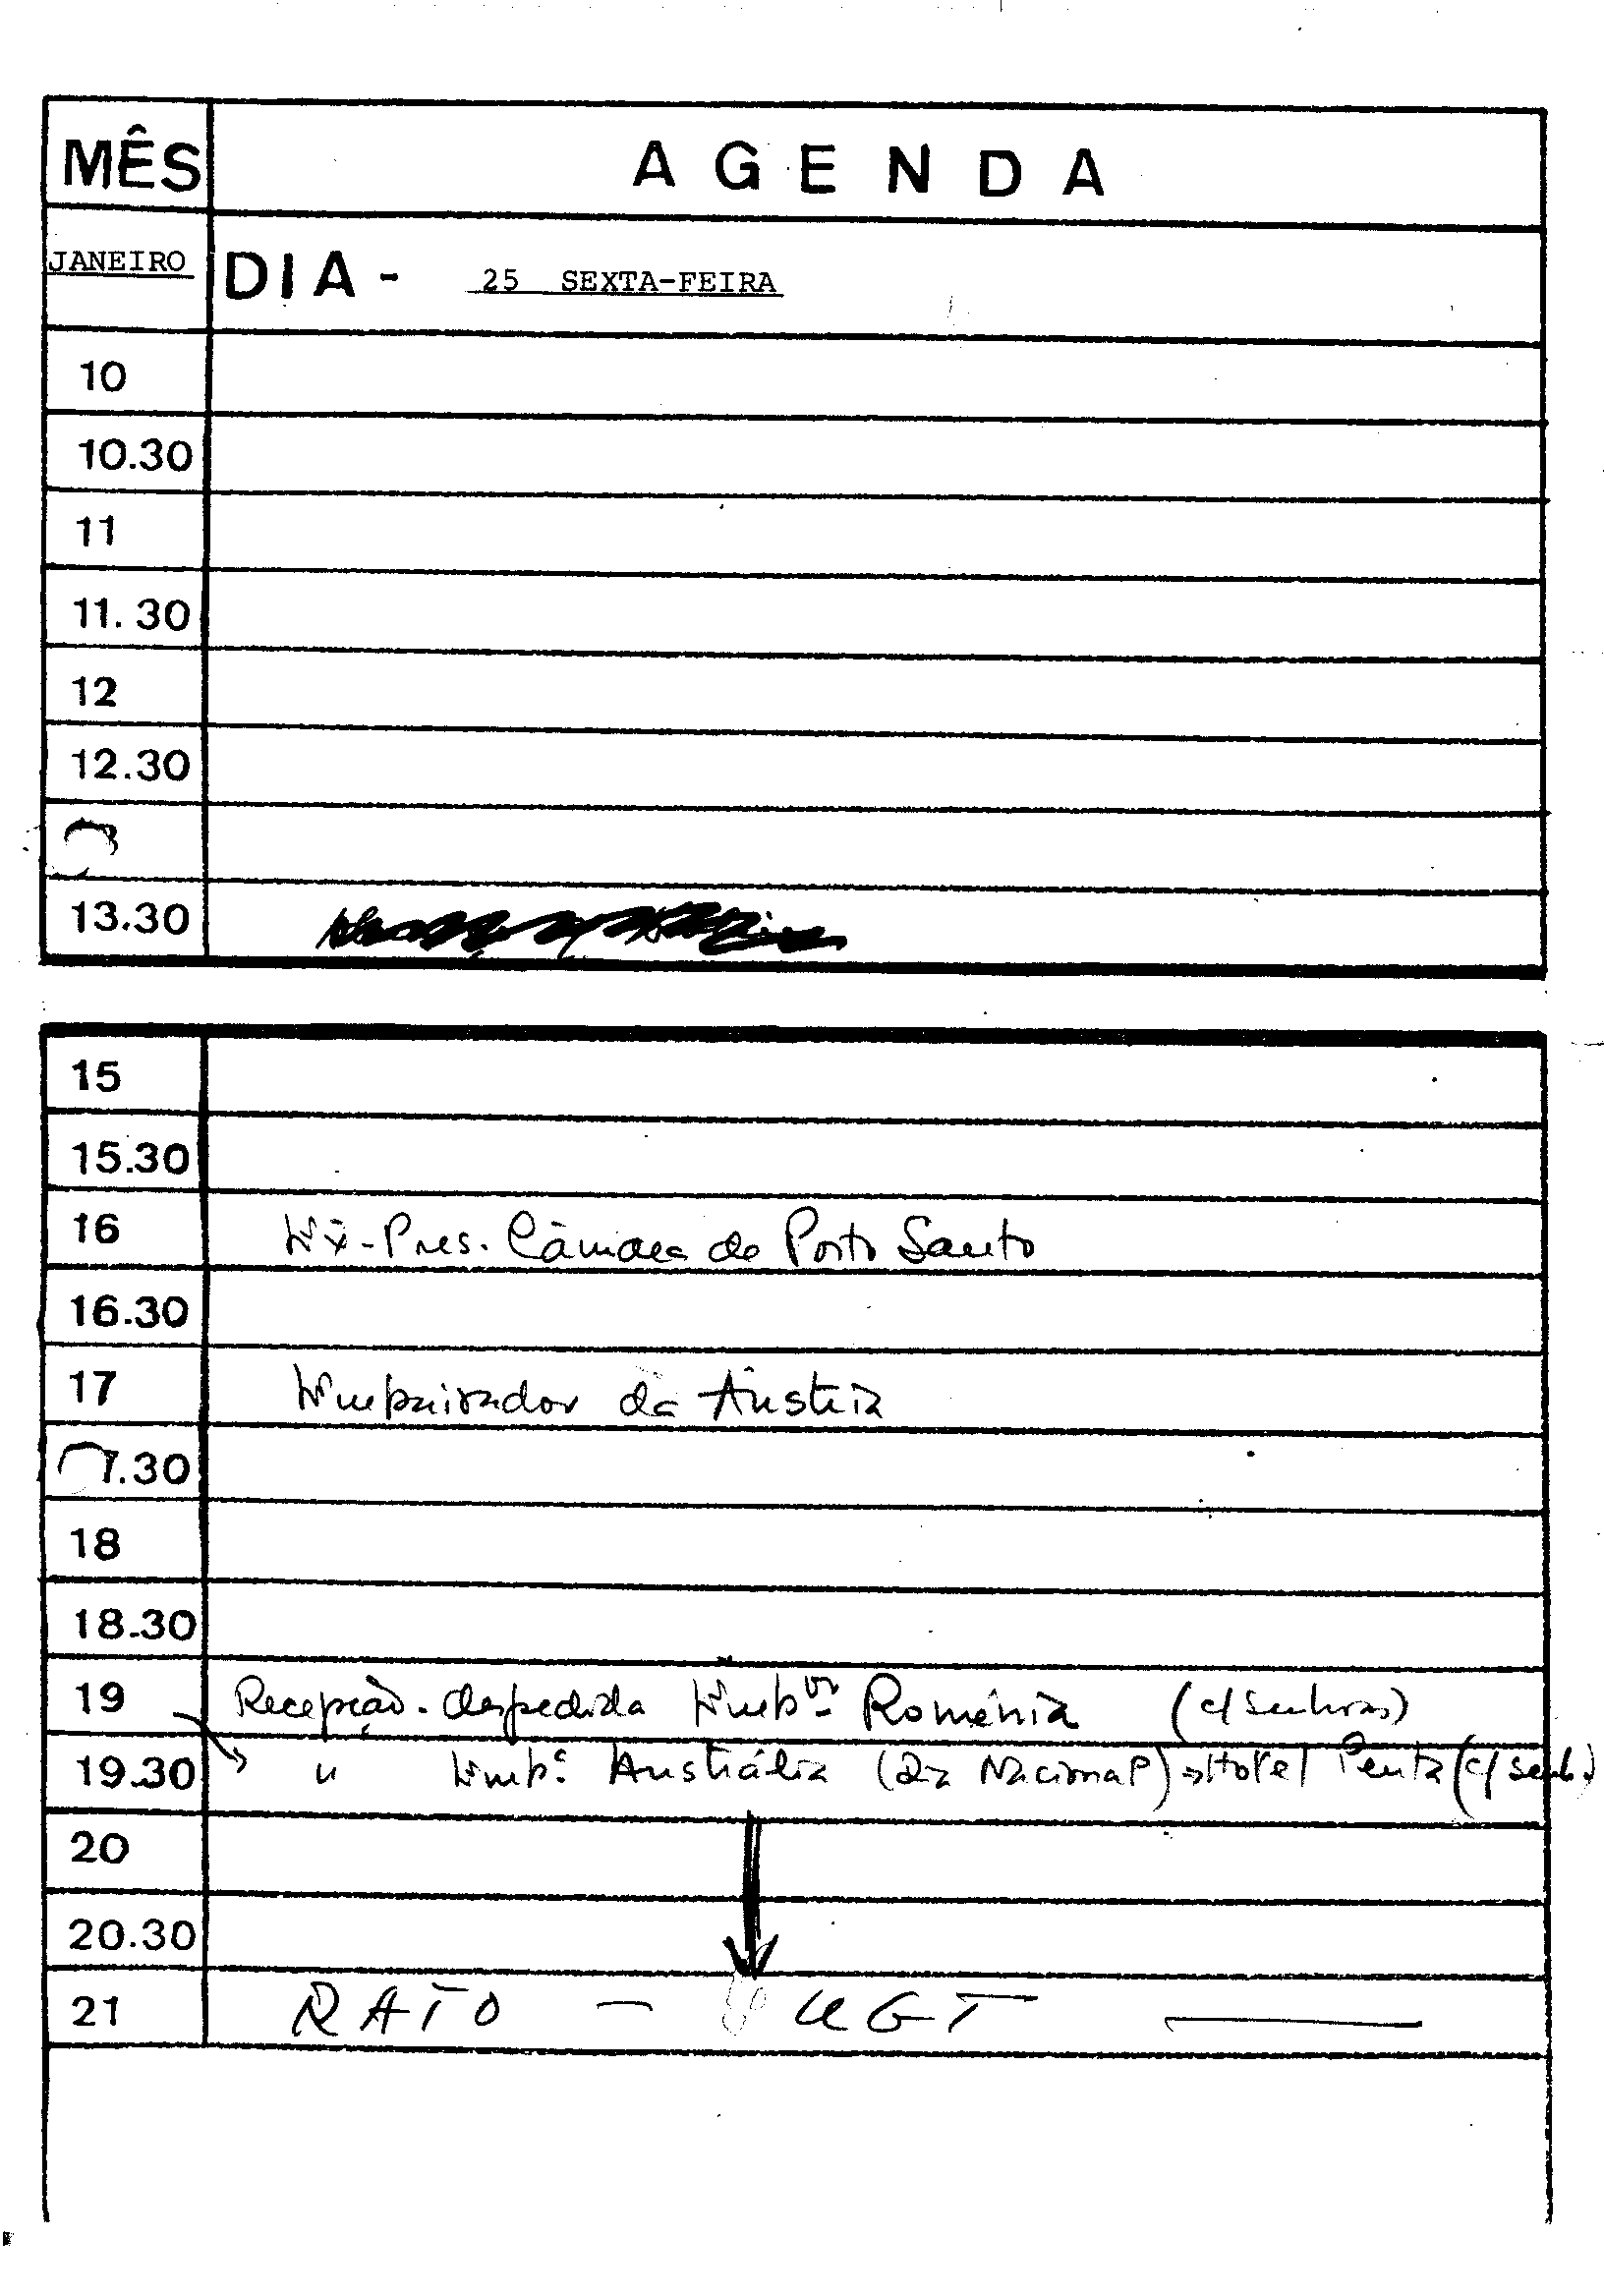 MÊS AGENDA
JANEIRO DIA - 25 SEXTA-FEIRA
10
10.30
11
11.30
12
12.30
13.30
15
15.30
16 Ex-Pres. Câmara de Porto Santo
16.30
17 Embaixador da Áustria
17.30
18
18.30
19 Recepção-despedida Embor Roménia (c/ senhoras)
19.30 " Emb. Austrália (Dia Nacional) Hotel Penta (c/ senh.)
20
20.30
21 RATO - UGT